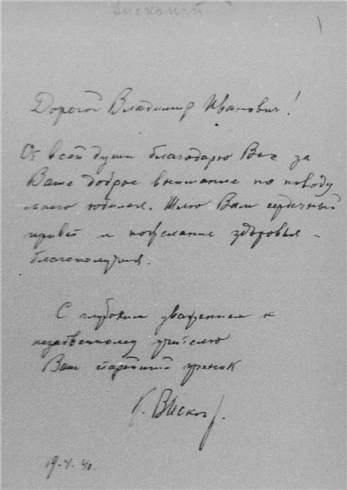 1
Дорогой Владимир Иванович!
От всей души благодарю Вас за
Ваше доброе внимание по поводу
моего юбилея. Шлю Вам сердечный
привет и пожелание здоровья -
благополучия.
С глубоким уважением к
незабвенному учителю
Ваш старейший ученик
19-V-40.